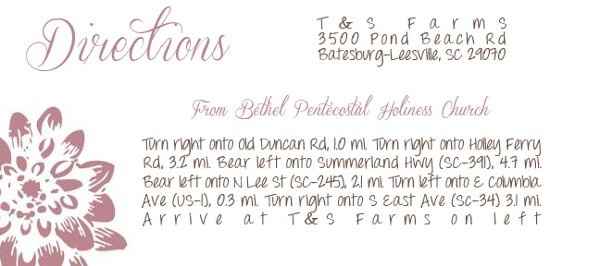 Directions
T & S Farms
3500 Pond Beach Rd
Batesburg-Leesville, SC 29070
From Bethel Pentecostal Holiness Church
Turn right onto Old Duncan Rd, 1.0 mi. Turn right onto Holley Ferry
Rd, 3.2 mi. Bear left onto Summerland Hwy (SC-391), 4.7 mi.
Bear left onto N Lee St (SC-245), 2.1 mi. Turn left onto E Columbia
Ave (US-1), 0.3 mi. Turn right onto S East Ave (SC-34) 3.1 mi.
Arrive at T&S Farms on left